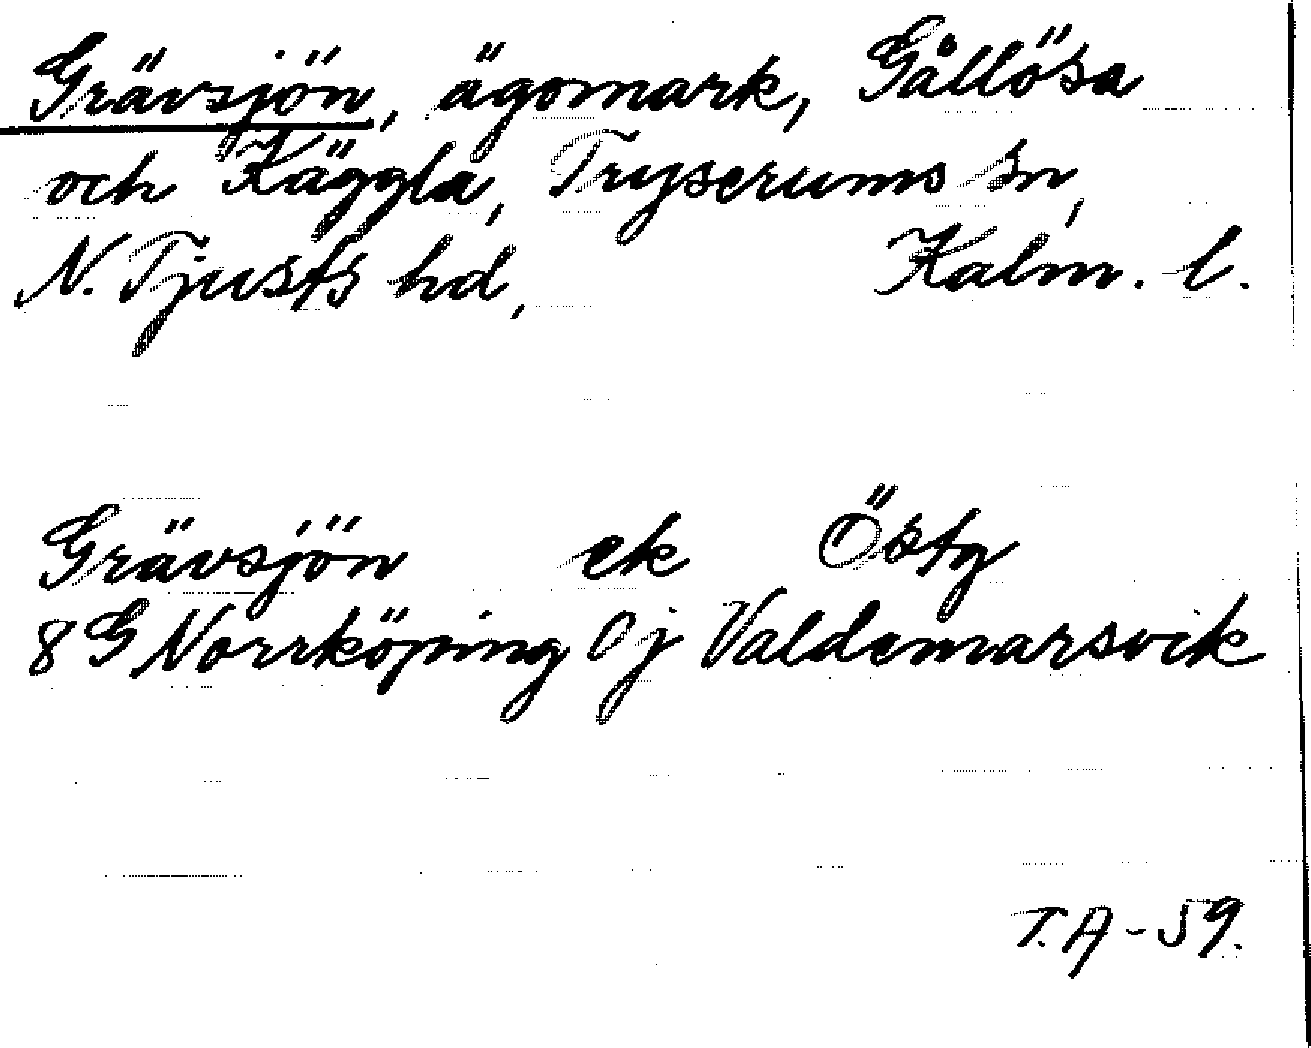 Grävsjön, ägomark, Gållösa
och Käggla, Tryserums sn,
N. Tjusts hd, Kalm. l.
Grävsjön ek Östg
8 G Norrköping 0j Valdemarsvik
T.A-59.